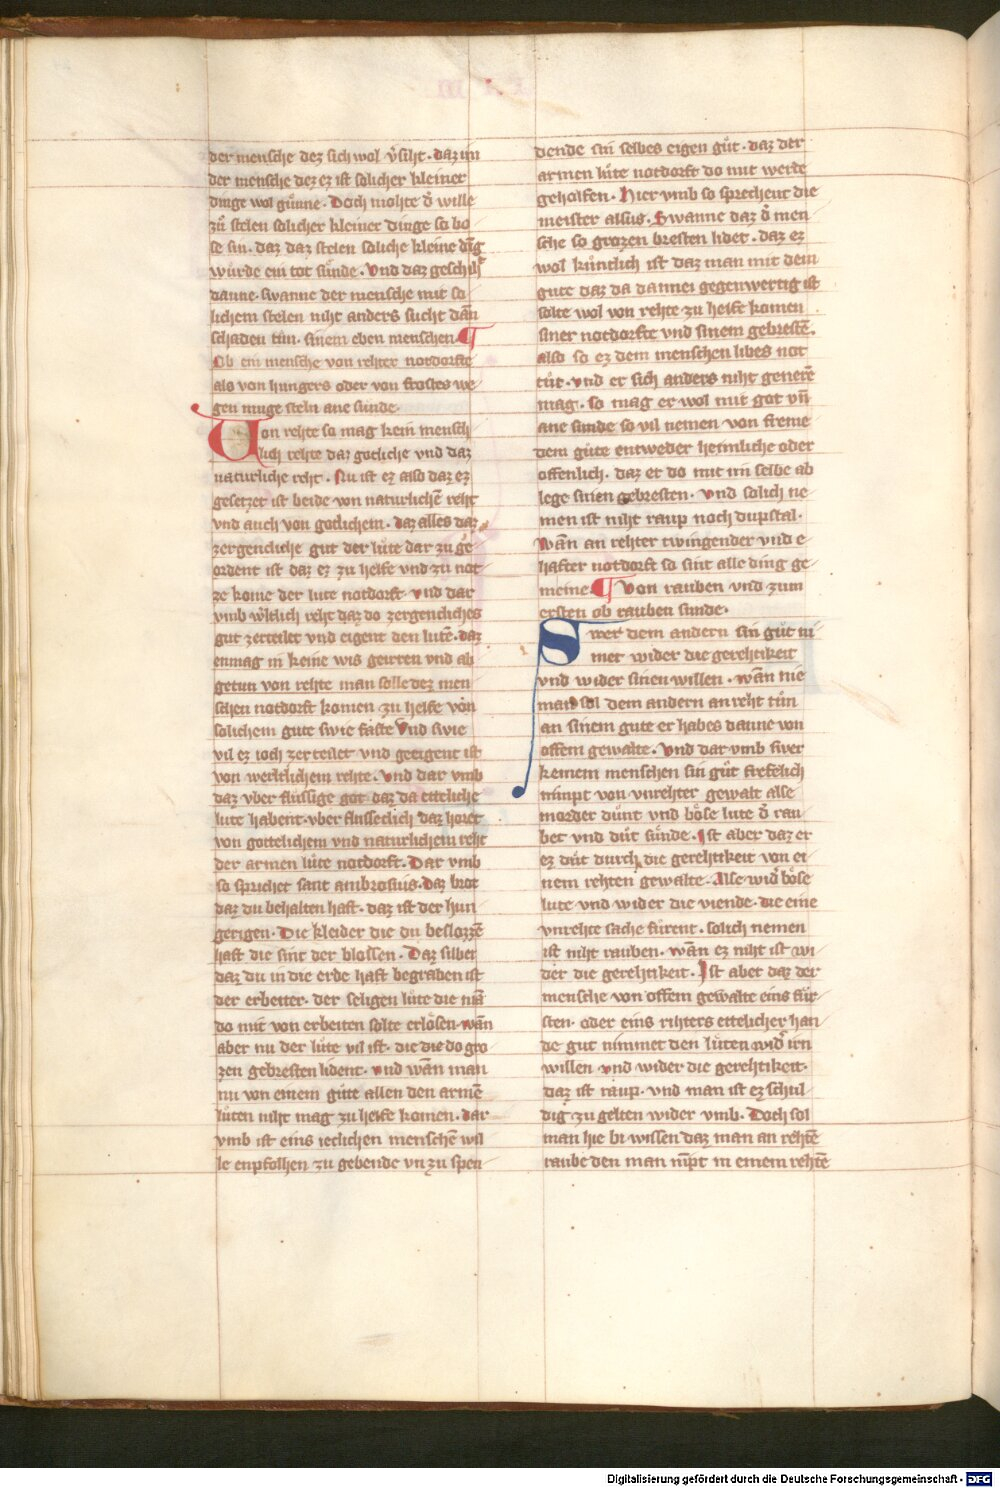 der mensche dez sich wol v̾siht · daz im
der mensche dez ez ist solicher kleiner
dinge wol gunne · Doch mohte d̾ wille
zů stelen solicher kleiner dinge so bo
se sin · daz daz stelen soliche kleine dīg
wůrde ein tot sůnde · Vnd daz geschiht
danne · swanne der mensche mit so
lichem stelen niht anders sucht dān
schaden tůn · sinem eben menschen ¶
Ob ein mensche von rehter notdorfte
als von hungers oder von frostes we
gen muge steln ane sunde ·
Von rehte so mag kein mensch
lich rehte daz gotliche vnd daz
naturliche reht · Nu ist ez also daz ez
gesetzet ist beide von naturlichē reht
vnd auch von gotlichem · daz alles daz
zergencliche gut der lůte dar zu ge
ordent ist daz ez zu helfe vnd zu not
ze kome der lute notdorft · vnd dar
vmb w̾ltlich reht daz do zergencliches
gut zerteilet vnd eigent den lutē · daz
enmag in keine wis geirren vnd ab
getun von rehte man solle dez men
schen notdorft komen zu helfe von
solichem gute swie faste Vnd swie
vil ez ioch zerteilet vnd geeigent ist
von werltlichem rehte · Vnd dar vmb
daz vber flussige got daz da etteliche
lute habent · vber flusseclich daz horet
von gottelichem vnd naturlichem reht
der armen lůte notdorft · Dar vmb
so sprichet sant ambrosius · daz brot
daz du behalten hast · daz ist der hun
gerigen · Die kleider die du beslozzē
hast die sint der blossen · Daz silber
daz du in die erde hast begraben ist
der erbeiter · der seligen lůte die mā
do mit von erbeiten solte erlôsen · wān
aber nu der lůte vil ist · die die do gro
zen gebresten lident · vnd wān man
nu von einem gůte allen den armē
lůten niht mag zu helfe komen · dar
vmb ist eins ieclichen menschē wil
le enpfolhen zu gebende vn zu spen
dende sin selbes eigen gůt · daz der
armen lůte notdorft do mit werde
geholfen · Hier vmb so sprechent die
meister alsus · Swanne daz d̾ men
sche so grozen bresten lidet · daz ez
wol kůntlich ist daz man mit dem
gute daz da dannei gegenwertig ist
solte wol von rehte zu helfe komen
siner notdorfte vnd sinem gebrestē ·
also so ez dem menschen libes not
tůt · vnd er sich anders niht generē
mag · so mag er wol mit got vn̄
ane sunde so vil nemen von freme
dem gůte entweder heimliche oder
offenlich · daz er do mit im selbe ab
lege sinen gebresten · vnd solich ne
men ist niht raup noch dupstal ·
Wān an rehter twingender vnd e
hafter notdorft so sint alle ding ge
meine · ¶ Von rauben vnd zum
ersten ob rauben sunde ·
Swer dem andern sin gůt ni
met wider die gerehtikeit
vnd wider sinen willen · wān nie
man sol dem andern an reht tůn
an sinem gute er habes danne von
offem gewalte · Vnd dar vmb swer
keinem menschen sin gůt frefelich
nimpt von vnrehter gewalt alse
morder důnt vnd bôse lute d̾ rau
bet vnd důt sůnde · Ist aber daz er
ez důt durch die gerehtikeit von ei
nem rehten gewalte · Alse wid̾ bôse
lute vnd wider die viende · die eine
vnrehte sache fůrent · solich nemen
ist niht rauben · wān ez niht ist wi
der die gerehtikeit · Ist aber daz der
mensche von offem gewalte eins fůr
sten · oder eins rihters ettelicher han
de gut nimmet den lůten wid̾ irn
willen vnd wider die gerehtikeit ·
daz ist raup · vnd man ist ez schul
dig zu gelten wider vmb · Doch sol
man hie bi wissen daz man an rehtē
raube den man nīpt in einem rehtē
Digitalisierung gefördert durch die Deutsche Forschungsgemeinschaft - DFG